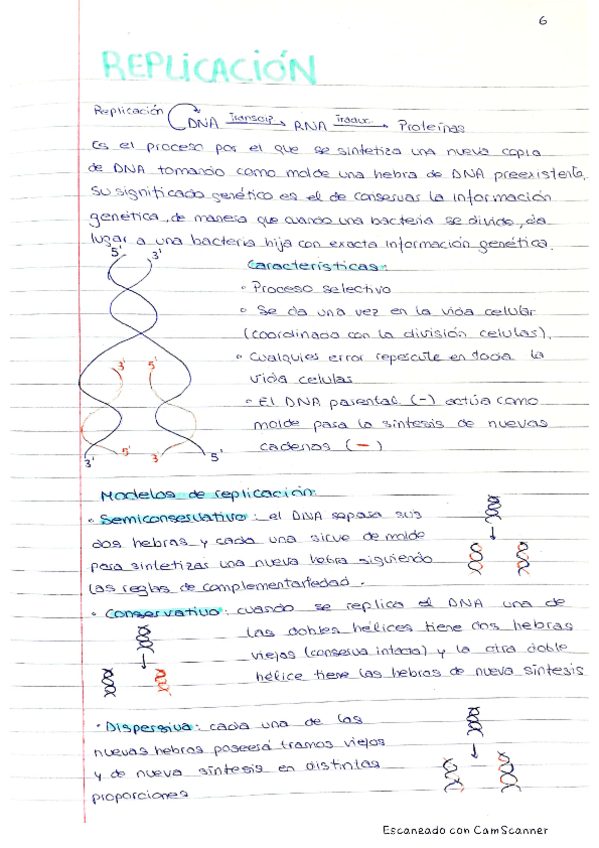 6
REPLICACIÓN
Replicación DNA transcrip RNA traduc Proteínas
Es el proceso por el que se sintetiza una nueva copia
de DNA tomando como molde una hebra de DNA preexistente,
su significado genético es el de conservar la información
genética, de manera que cuando una bacteria se divide, da
lugar a una bacteria hija con exacta información genética.
5' 3'
Características:
• Proceso selectivo
• Se da una vez en la vida celular
(coordinada con la división celular).
• Cualquier error repercute en toda la
3' 5'
vida celular
• El DNA parental (-) actúa como
molde para la síntesis de nuevas
cadenas (-)
3' 5' 3' 5'
Modelos de replicación:
• Semiconservativo: el DNA separa sus
dos hebras y cada una sirve de molde
para sintetizar una nueva hebra siguiendo
las reglas de complementariedad.
• Conservativo: cuando se replica el DNA una de
las dobles hélices tiene dos hebras
viejas (conserva intacta) y la otra doble
hélice tiene las hebras de nueva síntesis
• Dispersiva: cada una de las
nuevas hebras poseerá tramos viejos
y de nueva síntesis en distintas
proporciones
Escaneado con CamScanner